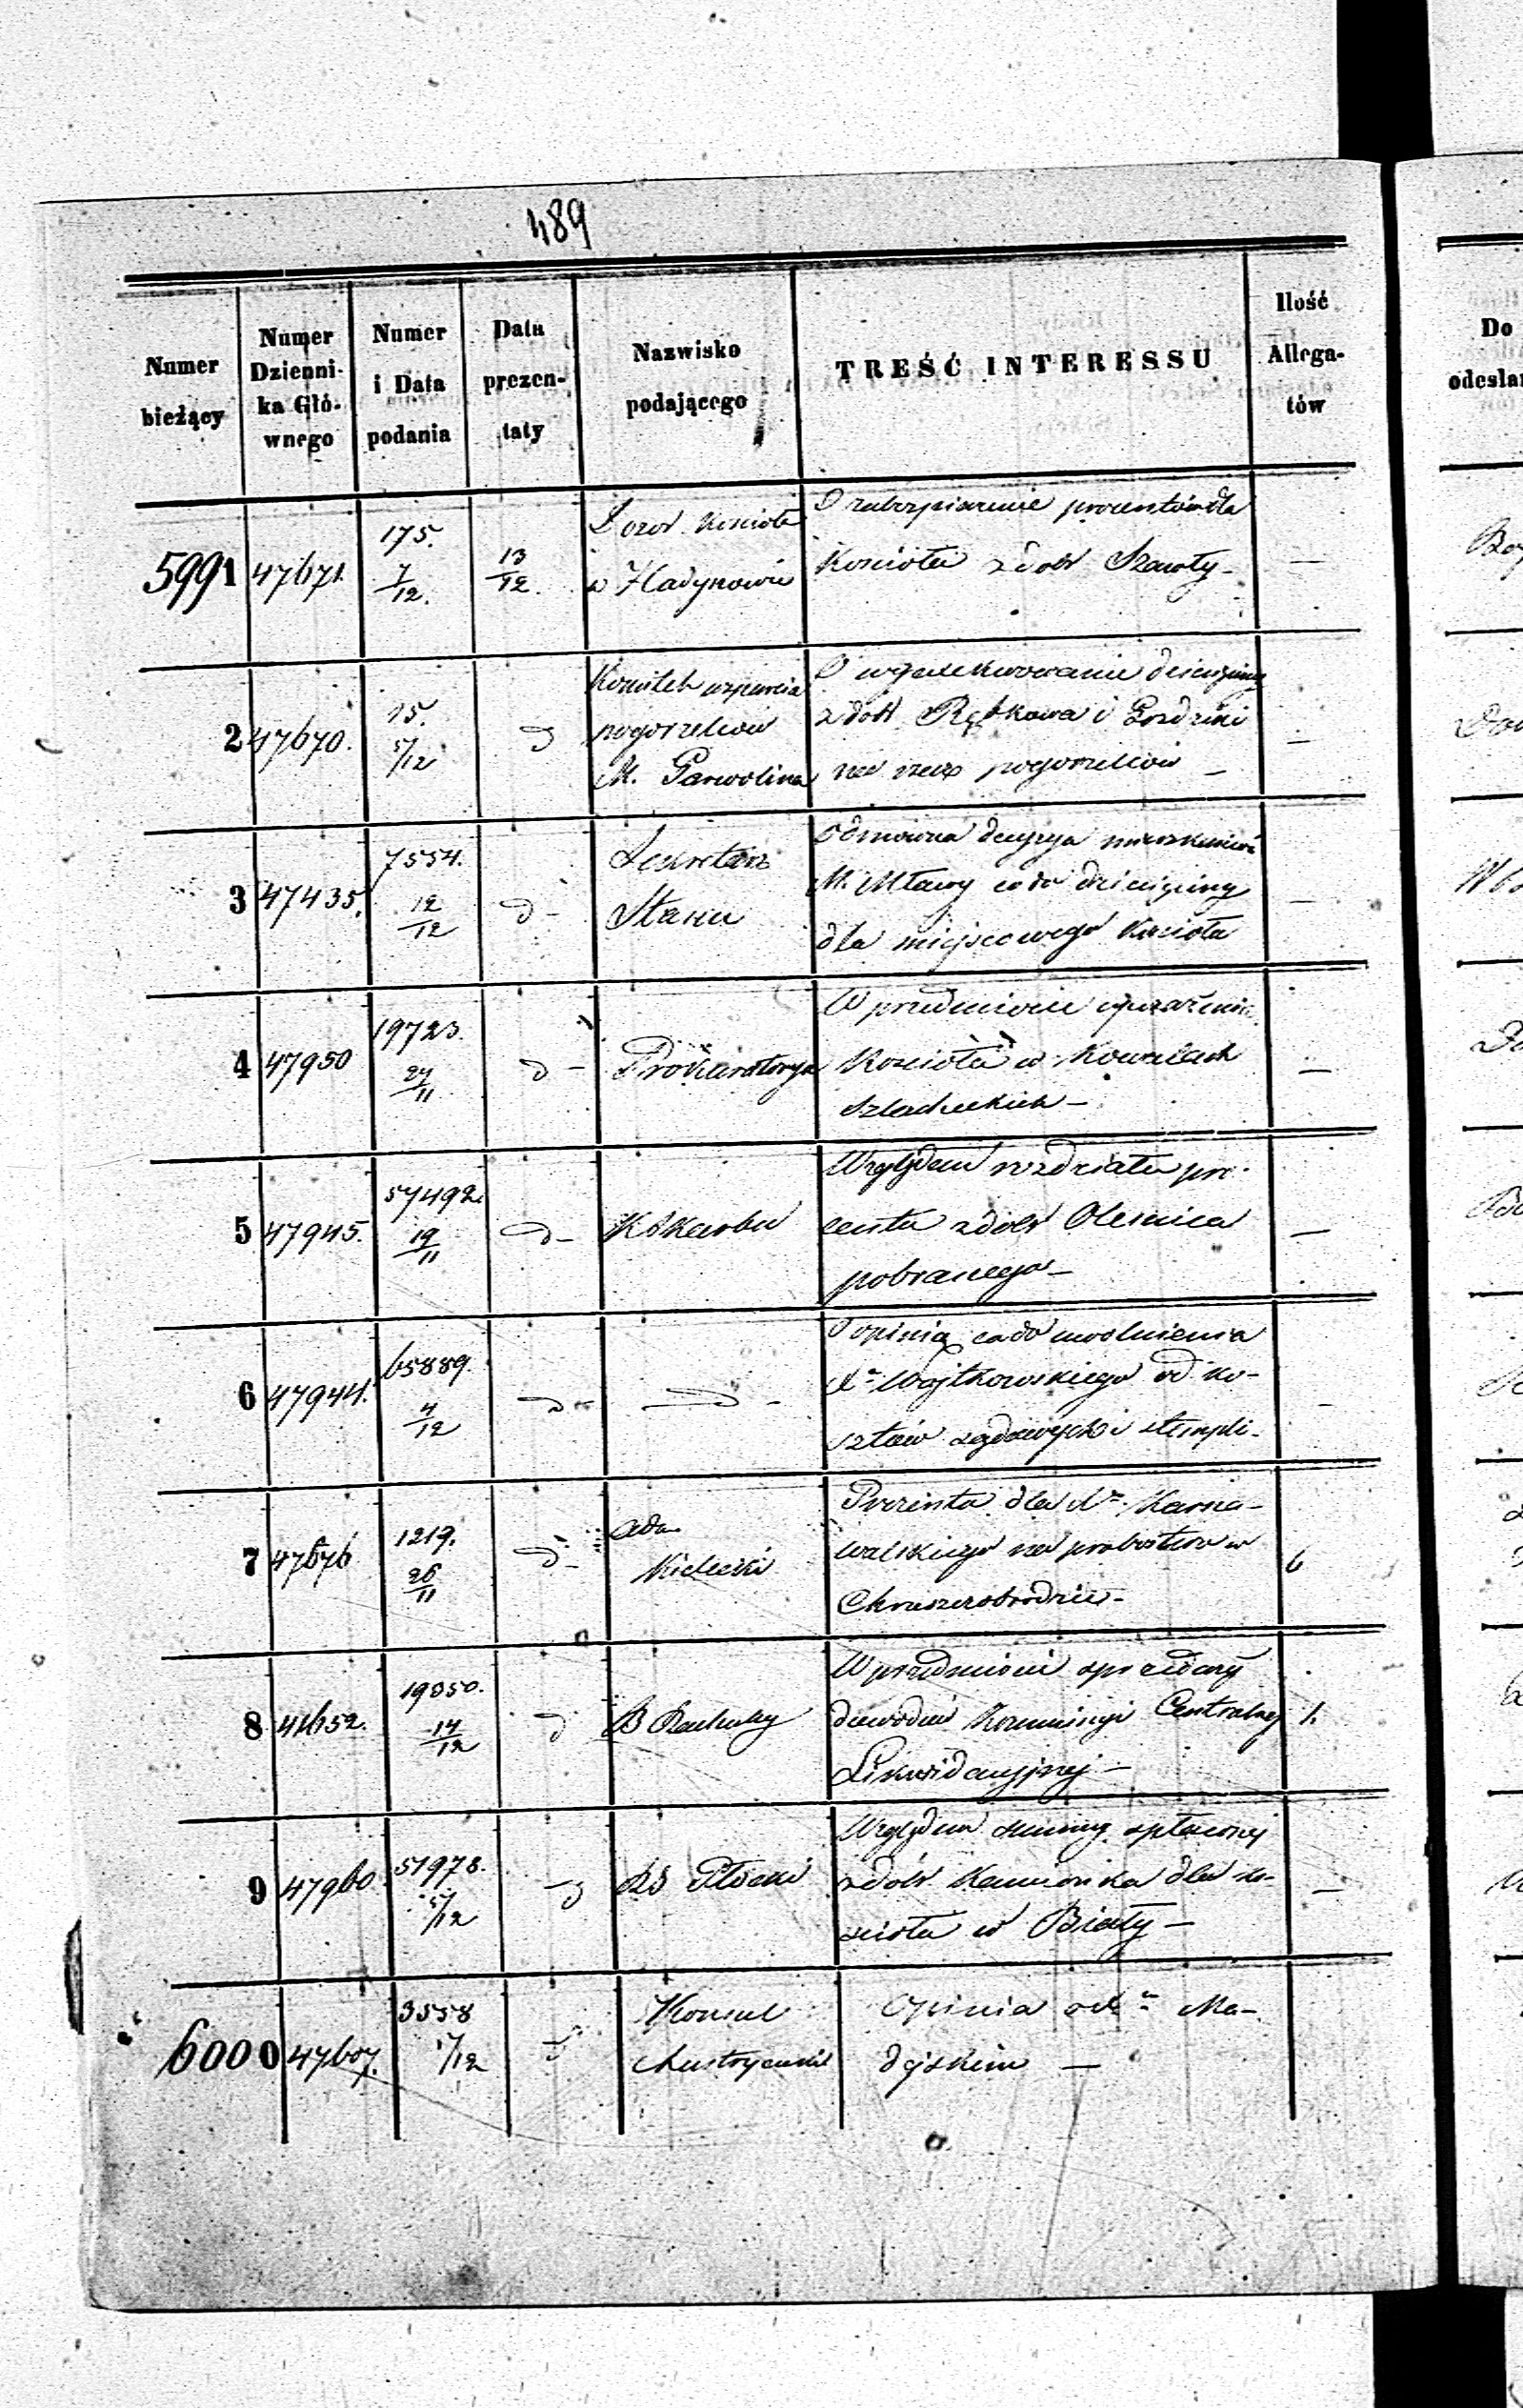 489
Numer bieżący
Numer Dzienni- ka Głó- wnego
Numer i Data podania
Data prezen- taty
Nazwisko podającego
TREŚĆ INTERESSU
Ilość Allega- tów
Do
odesłan
5991 47671. 175. 7/12. 13/12.
Dozór Kościoła
w Hadynowie
kościoła z dóbr Szaroty -
—
2 47670. 15. 5/12 d
Komitet wsparcia
pogorzelców
M. Garwolina
O wyexekwowanie dziesięciny
z dóbr Rębkowa i
na rzecz pogorzelców —
—
3 47435. 7554. 12/12 d -
Sekretarz
Stanu
Odmowna decyzya mieszkańców
M. Mławy co do dziesięciny
dla miejscowego Kościoła
—
4 47950 19723. 24/11 d -
Prokuratorya
W przedmiocie
Kościoła w Kowalach
Szlacheckich —
—
5 47945. 57492. 19/11 d -
K Skarbu
Względem rozdziału pro-
centu z dóbr Olesnica
pobranego —
—
6 47944. 65889. 4/12 d -
d -
O opinią co do uwolnienia
Xa Wojtkowskiego od ko-
sztów sądowych i stempli -
-
7 47676 1219. 26/11 d -
Adm.
Kielecki
Prezenta dla Xa Karna-
walskiego na probostwo w
Chruszczobrodzie -
6
8 41652. 19350. 14/12 d
B Rachuby
W przedmiocie sprzedaży
dowodów Kommissyi Centralnej
Likwidacyjnej —
1.
9 47960 51978. 5/12 d
RG Płocki
Względem summy spłaconej
z dóbr Kamionka dla ko-
ścioła w Biały —
—
6000 47607. 3558 1/12 d
Konsul
Austryacki
Opinia o Xu Ma-
dejskim —